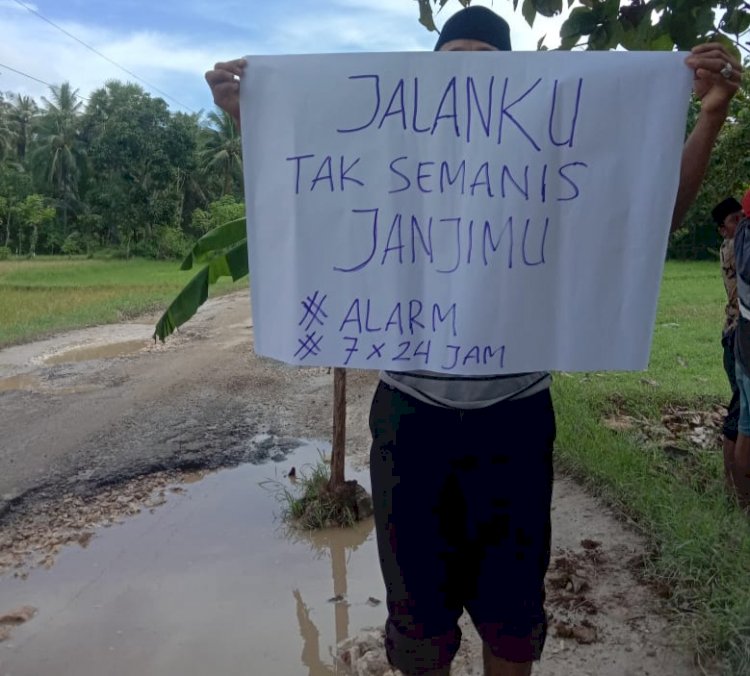 JALANKU
TAK SEMANIS
JANJIMU
# ALARM
# 7 x 24 JAM